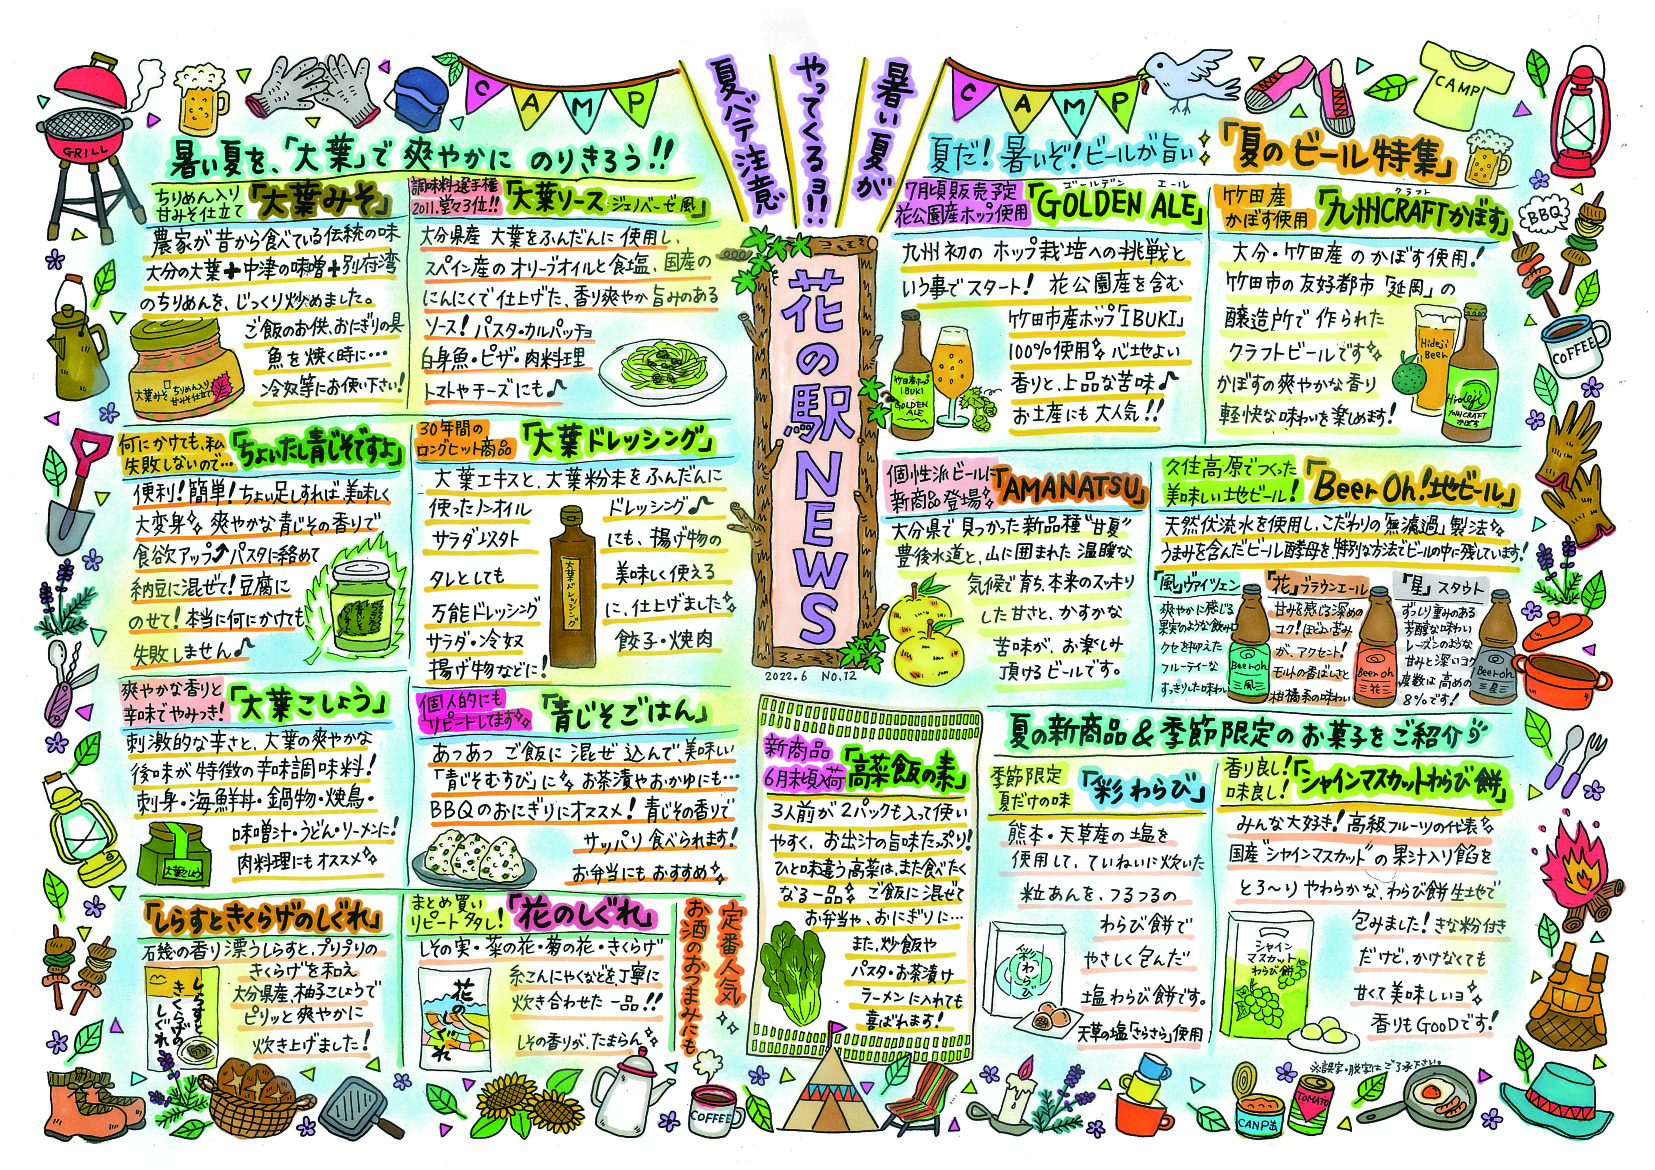 暑い夏が
やってくるョ!!
夏バテ注意
花の駅NEWS
2022.6 No.12
CAMP
暑い夏を、「大葉」で爽やかに のりきろう!!
ちりめん入り
甘みそ仕立て
「大葉みそ」
農家が昔から食べている伝統の味
大分の大葉+中津の味噌+別府湾
のちりめんを、じっくり炒めました。
ご飯のお供、おにぎりの具
魚を焼く時に…
冷奴等にお使い下さい!
大葉みそ ちりめん入り
甘みそ仕立て
調味料選手権
2011.堂々3位!!
「大葉ソース ジェノベーゼ風」
大分県産 大葉をふんだんに 使用し、
スペイン産の オリーブオイルと食塩、国産の
にんにくで仕上げた、香り爽やか 旨みのある
ソース! パスタ・カルパッチョ
白身魚・ピザ・肉料理
トマトやチーズにも♪
何にかけても、私
失敗しないので…
「ちょいたし青じそですよ」
便利!簡単!ちょい足しすれば、美味しく
大変身 爽やかな青じその香りで
食欲アップ⤴パスタに絡めて
納豆に混ぜて!豆腐に
のせて!本当に何にかけても
失敗しません♪
30年間の
ロングヒット商品
「大葉ドレッシング」
大葉エキスと、大葉粉末をふんだんに
使ったノンオイル
サラダパスタ
タレとしても
万能ドレッシング
サラダ・冷奴
揚げ物などに!
ドレッシング♪
にも、揚げ物の
美味しく使える
に、仕上げました
餃子・焼肉
大葉ドレッシング
爽やかな香りと
辛味でやみつき!
「大葉こしょう」
刺激的な辛さと、大葉の爽やかな
後味が特徴の辛味調味料!
刺身・海鮮丼・鍋物・焼鳥・
味噌汁・うどん・ソーメンに!
肉料理にもオススメ
大葉こしょう
個人的にも
リピートしてます
「青じそごはん」
あつあつ ご飯に 混ぜ込んで、美味しい
「青じそむすび」に お茶漬やおかゆにも…
BBQのおにぎりにオススメ! 青じその香りで
サッパリ食べられます!
お弁当にもおすすめ
「しらすときくらげのしぐれ」
石幾の香り漂うしらすと、プリプリの
きくらげを和え
大分県産、柚子こしょうで
ピリッと爽やかに
炊き上げました!
しらすと
きくらげの
しぐれ
まとめ買い
リピートタタし!
「花のしぐれ」
しその実・菜の花・菊の花・きくらげ
糸こんにゃくなどを、丁寧に
炊き合わせた一品!!
しその香りが、たまらん
花のしぐれ
定番人気
お酒のおつまみにも
新商品
6月末頃入荷
「高菜飯の素」
3人前が2パックも入って使い
やすく、お出汁の旨味たっぷり!
ひと味違う高菜は、また食べたく
なる一品 ご飯に混ぜて
お弁当や、おにぎりに…
また、炒飯や
パスタ・お茶漬け
ラーメンに入れても
喜ばれます!
CAMP
夏だ! 暑いぞ!ビールが旨い
「夏のビール特集」
7月頃販売予定
花公園産ホップ使用
ゴールデン エール
「GOLDEN ALE」
九州初の ホップ栽培への挑戦と
いう事でスタート! 花公園産を含む
竹田市産ホップ「IBUKI」
100%使用 心地よい
香りと、上品な苦味♪
お土産にも大人気!!
竹田産ホップ
IBUKI
GOLDEN
ALE
竹田産
かぼす使用
クラフト
「九州CRAFTかぼす」
大分・竹田産のかぼす使用!
竹田市の友好都市「延岡」の
醸造所で作られた
クラフトビールです
かぼすの爽やかな香り
軽快な味わいを楽しめます!
Hideji
Beer
Hideji
九州CRAFT
かぼす
個性派ビールに
新商品登場
「AMANATSU」
大分県で見つかった新品種"甘夏"
豊後水道と、山に囲まれた温暖な
気候で育ち、本来のスッキリ
した甘さと、かすかな
苦味が、お楽しみ
頂けるビールです。
久住高原でつくった
美味しい地ビール!
「Beer Oh!地ビール」
天然伏流水を使用し、こだわりの「無濾過」製法
うまみを含んだビール酵母を、特別な方法でビールの中に残しています!
「風」ヴァイツェン
爽やかに感じる
果実のような飲み口
クセを抑えた
フルーティーな
すっきりした味わい
Beer oh
風
「花」ブラウンエール
甘みを感じる深めの
コク!ほどよい苦み
が、アクセント!
モルトの香ばしさと
柑橘系の味わい
Beer oh
花
「星」スタウト
ずっしり重みのある
芳醇な味わい
レーズンのような
甘みと深いコク
度数は高めの
8%です!
Beer oh
星
夏の新商品&季節限定のお菓子をご紹介
季節限定
夏だけの味
「彩わらび」
熊本・天草産の塩を
使用して、ていねいに炊いた
粒あんを、つるつるの
わらび餅で
やさしく包んだ
塩わらび餅です。
天草の塩「さらさら」使用
彩わらび
香り良し!
味良し!
「シャインマスカットわらび餅」
みんな大好き!高級フルーツの代表
国産"シャインマスカット"の果汁入り餡を
とろ〜りやわらかな、わらび餅生地で
包みました! きな粉付き
だけど、かけなくても
甘くて美味しいョ
香りもGooDです!
シャイン
マスカット
わらび餅
※認定・脱定はご了承下さい。
GRILL
CAMP
BBQ
COFFEE
COFFEE
CANP缶
TOMATO